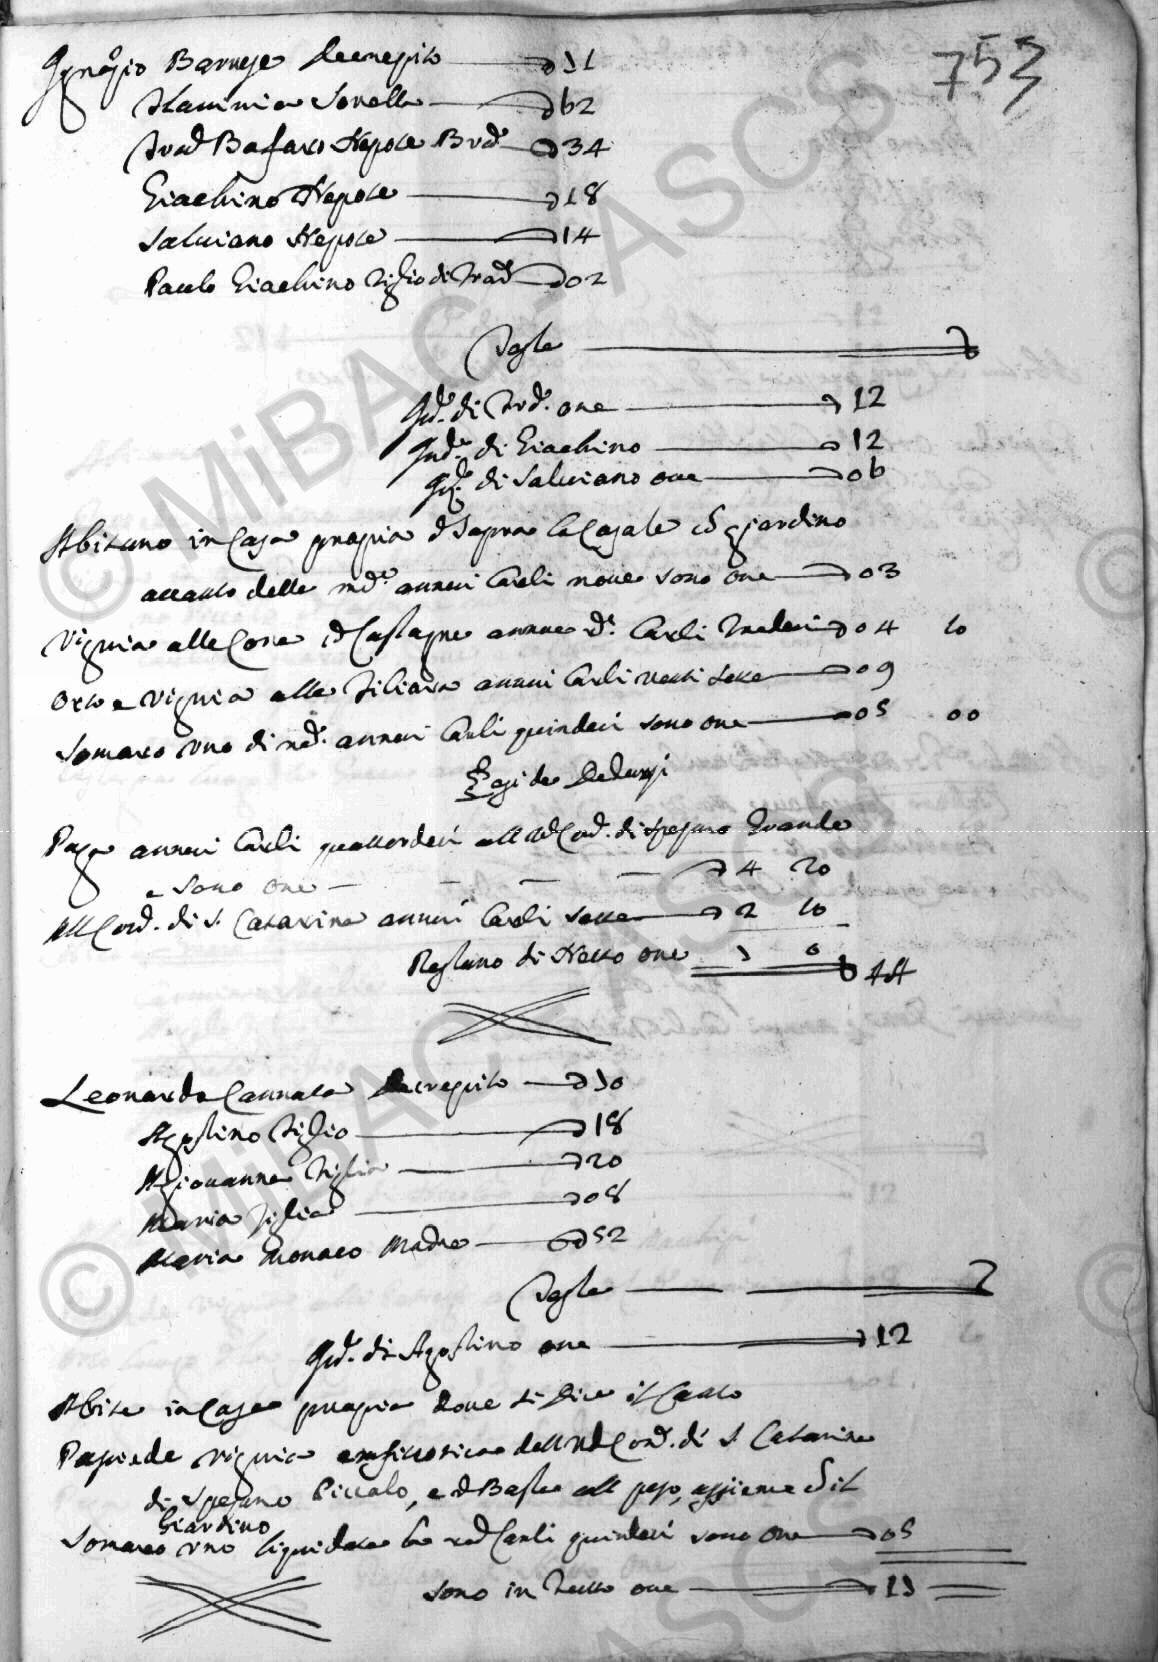 753
Ignatio Barrese Decrepito 71
Flaminia Sorella 62
Frad Baffaro Nepote Brd.e 34
Giachino Nepote 18
Salviano Nepote 14
Paulo Giachino figlio di Frad 02
Teste
Ind.e di Frd.e one 12
Ind.e di Giachino 12
Ind.e di Salviano one 06
Abitano in Casa propria Sopra la Casale giardino
accanto delle annui Carli nove sono one 03
Vignia alle Cone Castagne annue Carli Tredeci 04 10
Orto e Vignia alla Filiara annui Carli venti sette 09
Somaro uno di annui Carli quindeci sono one 05 00
Pesi da Dedursi
Paga annui Carli quattordeci all di Spezano Grande
e sono one 4 20
All di S. Catarina annui Carli sette 2 10
Restano di Netto one 44
Leonardo Cannata Decrepito 70
Agostino figlio 18
Agiovanna figlia 20
Maria figlia 08
Maria Monaco Madre 52
Teste
Ind. di Agostino one 12
Abita in Casa propria dove si dice il Canto
Possiede vignia di S. Catarina
di Spezano Piccolo, e Basta all peso, assieme il
Giardino
Somaro uno liquidata Carli quindeci sono one 05
sono in tutto one 17
© MiBAC - ASCS
© MiBAC - ASCS